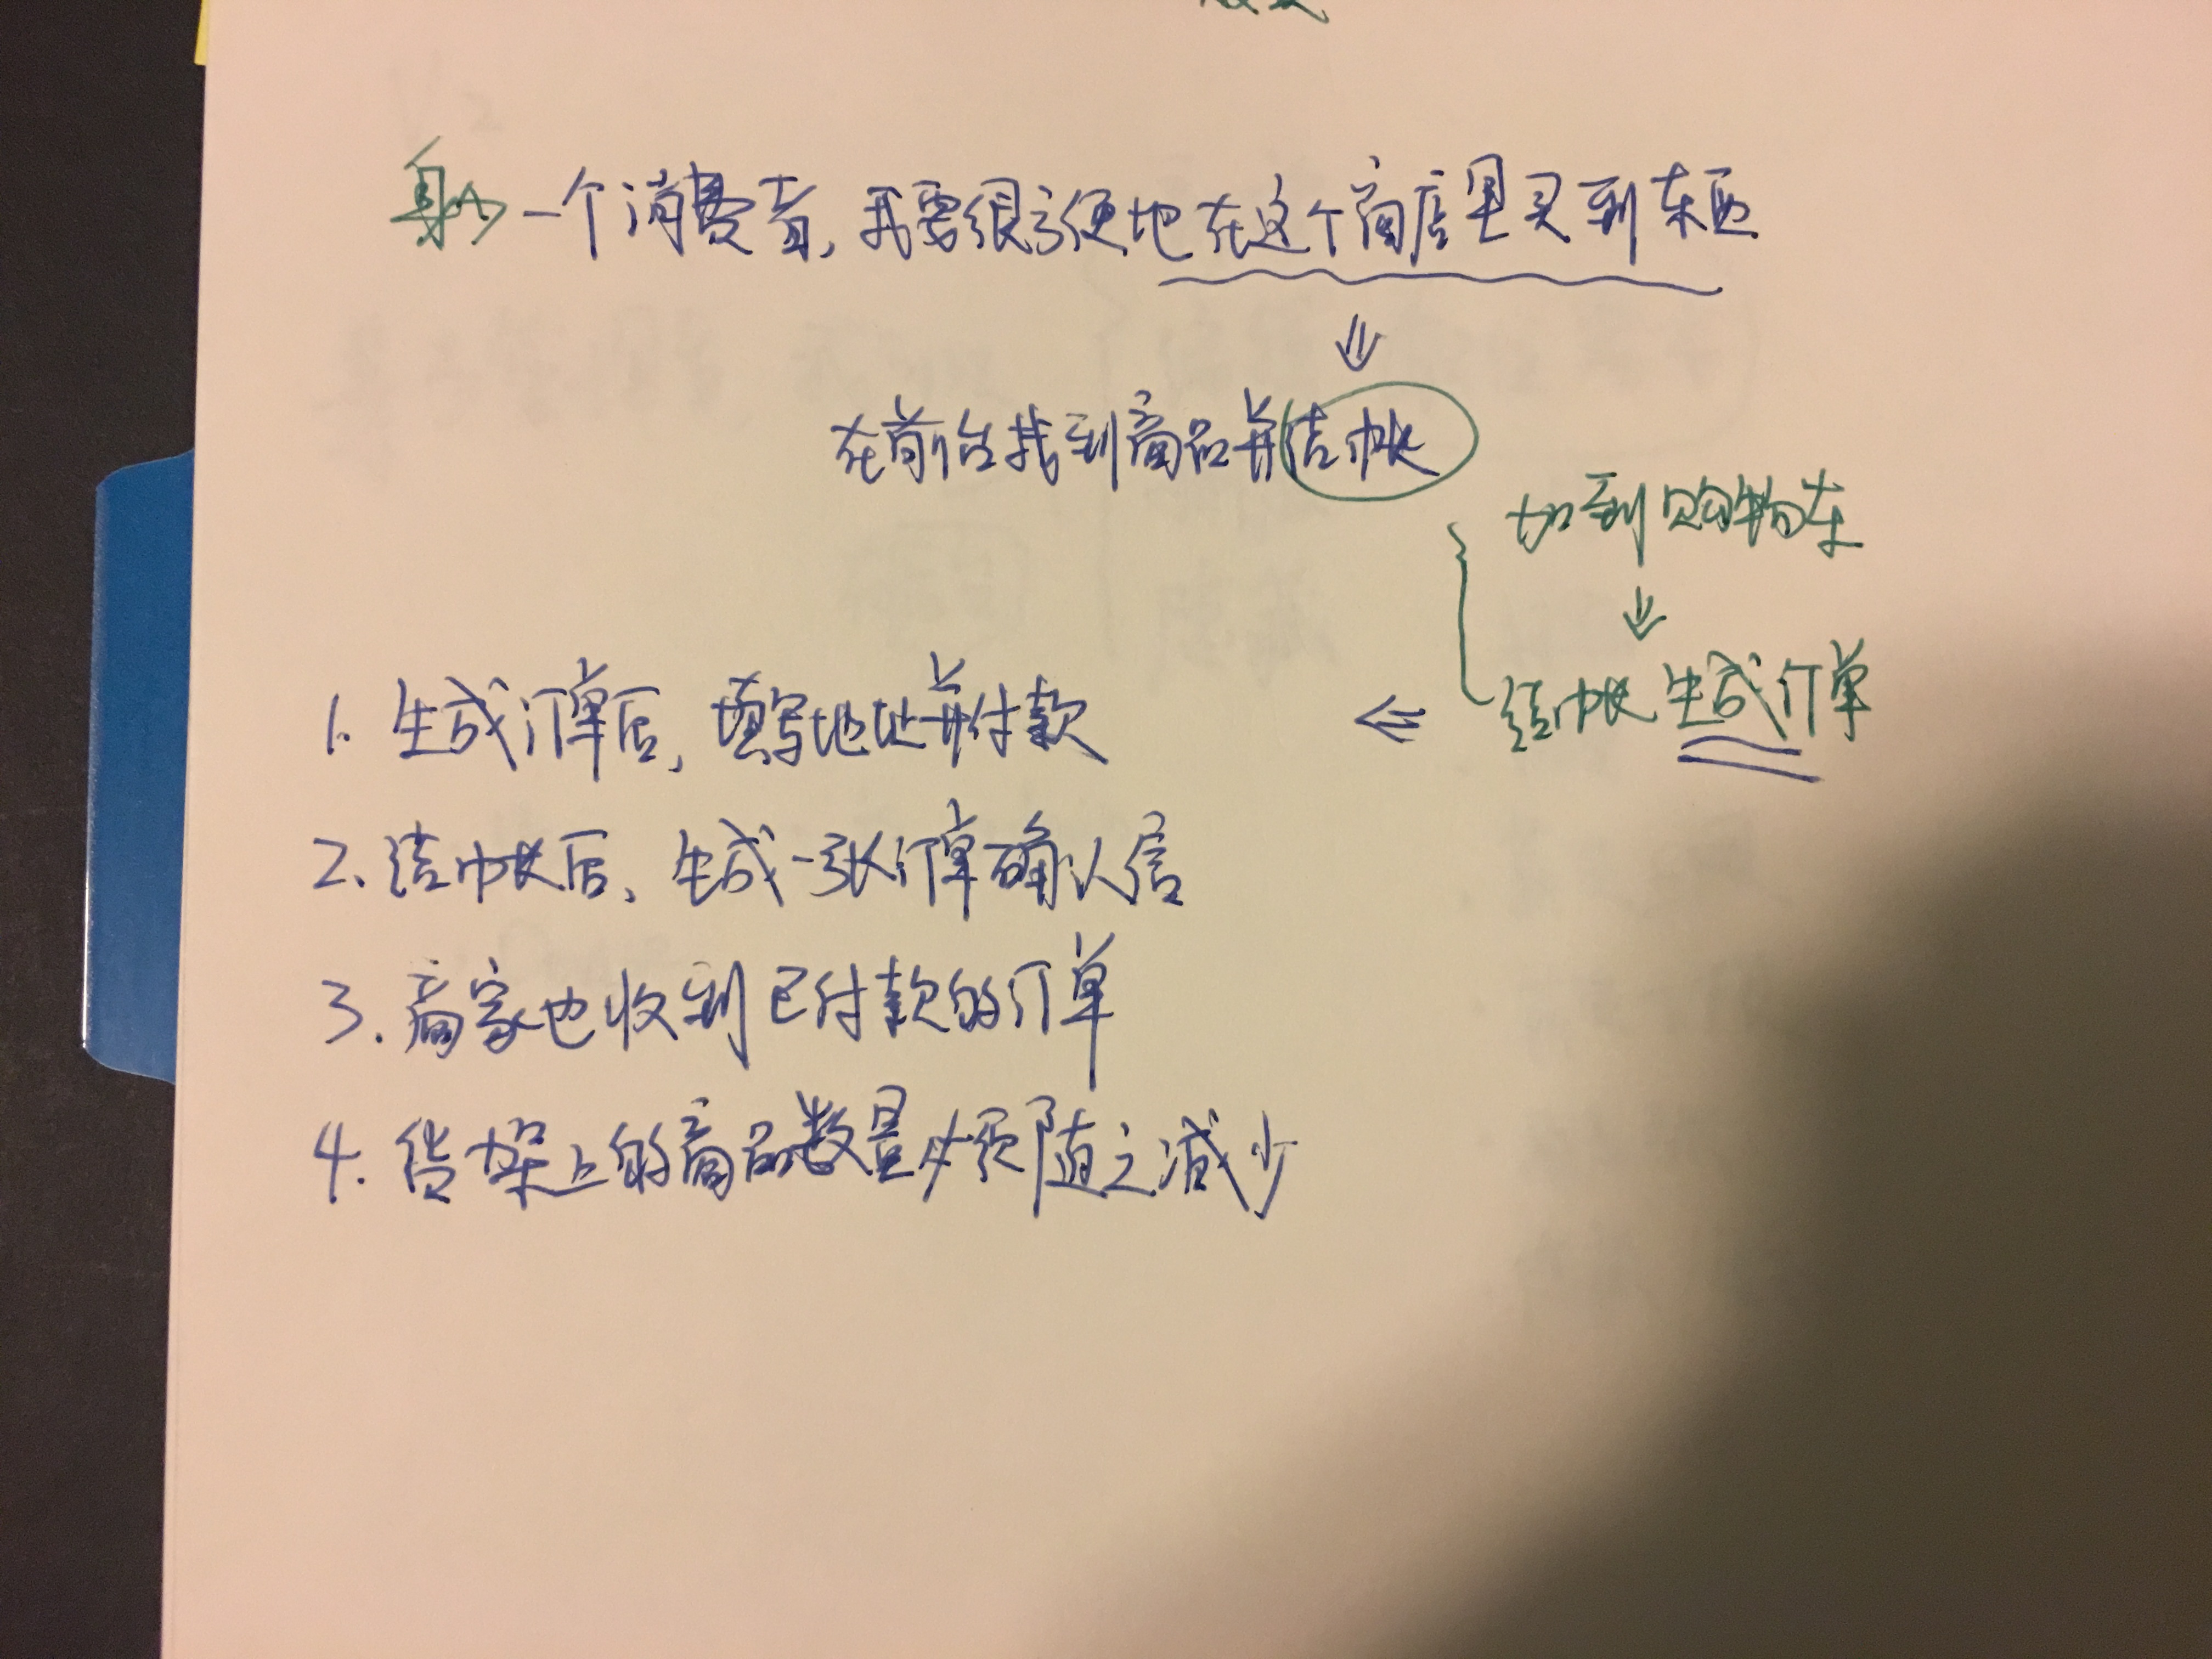 身为一个消费者，我要很方便地在这个商店里买到东西
⇓
在前台找到商品并结帐
加到购物车
⇓
结帐生成订单
⇐
1. 生成订单后，填写地址并付款
2. 结帐后、生成一张订单确认信
3. 商家也收到已付款的订单
4. 货架上的商品数量必须随之减少